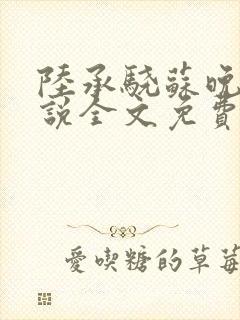 陸承驍蘇晚
說全文免費
愛喫糖的草莓